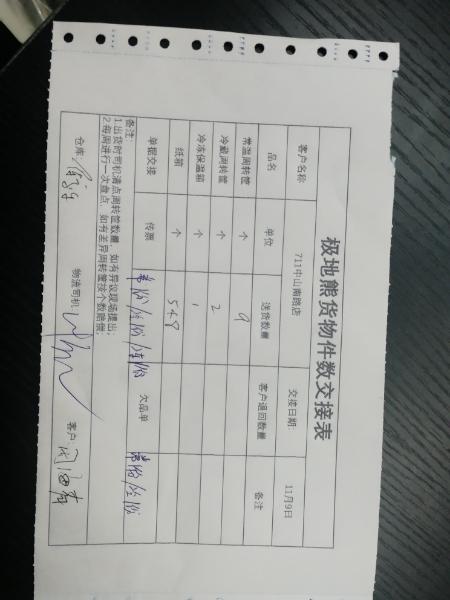 极地熊货物件数交接表
客户名称 711中山南路店 交接日期: 11月9日
品名 单位 送货数量 客户退回数量 备注
常温周转筐 个 9
冷藏周转筐 个 2
冷冻保温箱 个 1
纸箱 个 549
单据交接 传票 欠品单
备注:
1.出货时司机清点周转筐数量,如有异议现场提出;
2.每周进行一次盘点,如有差异周转筐按个数赔偿;
仓库: 物流司机: 客户: